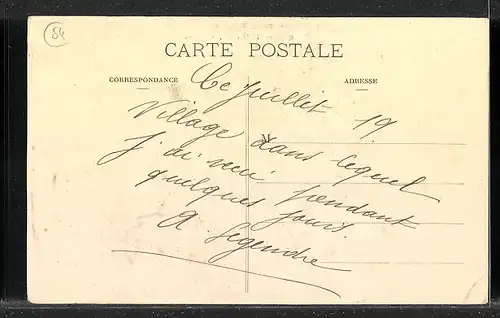 84
CARTE POSTALE
CORRESPONDANCE
ADRESSE
Juillet 19
Village dans lequel
j'ai pendant
quelques jours.
A. Legendre